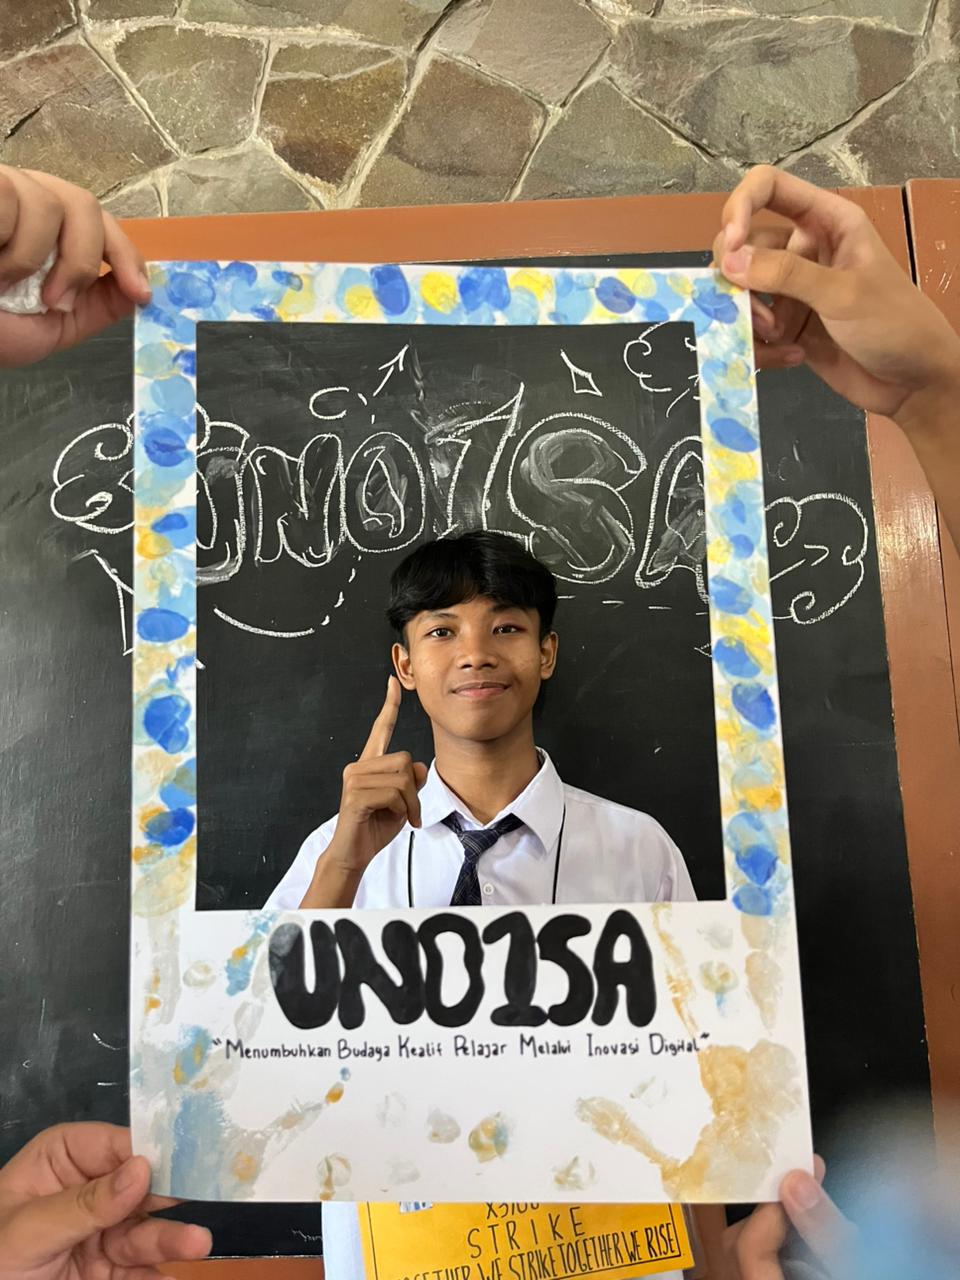 UNO1SA
UNO1SA
"Menumbuhkan Budaya Kealif Pelajar Melalui Inovasi Digital"
STRIKE
TOGETHER WE STRIKE TOGETHER WE RISE